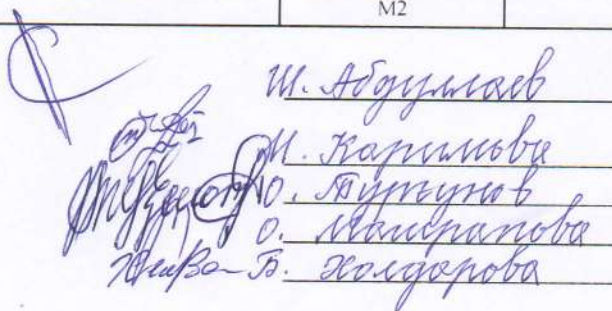 M2
Ш. Абдуллаев
М. Каримова
Ю. Турғунов
О. Машрапова
Б. Холдорова